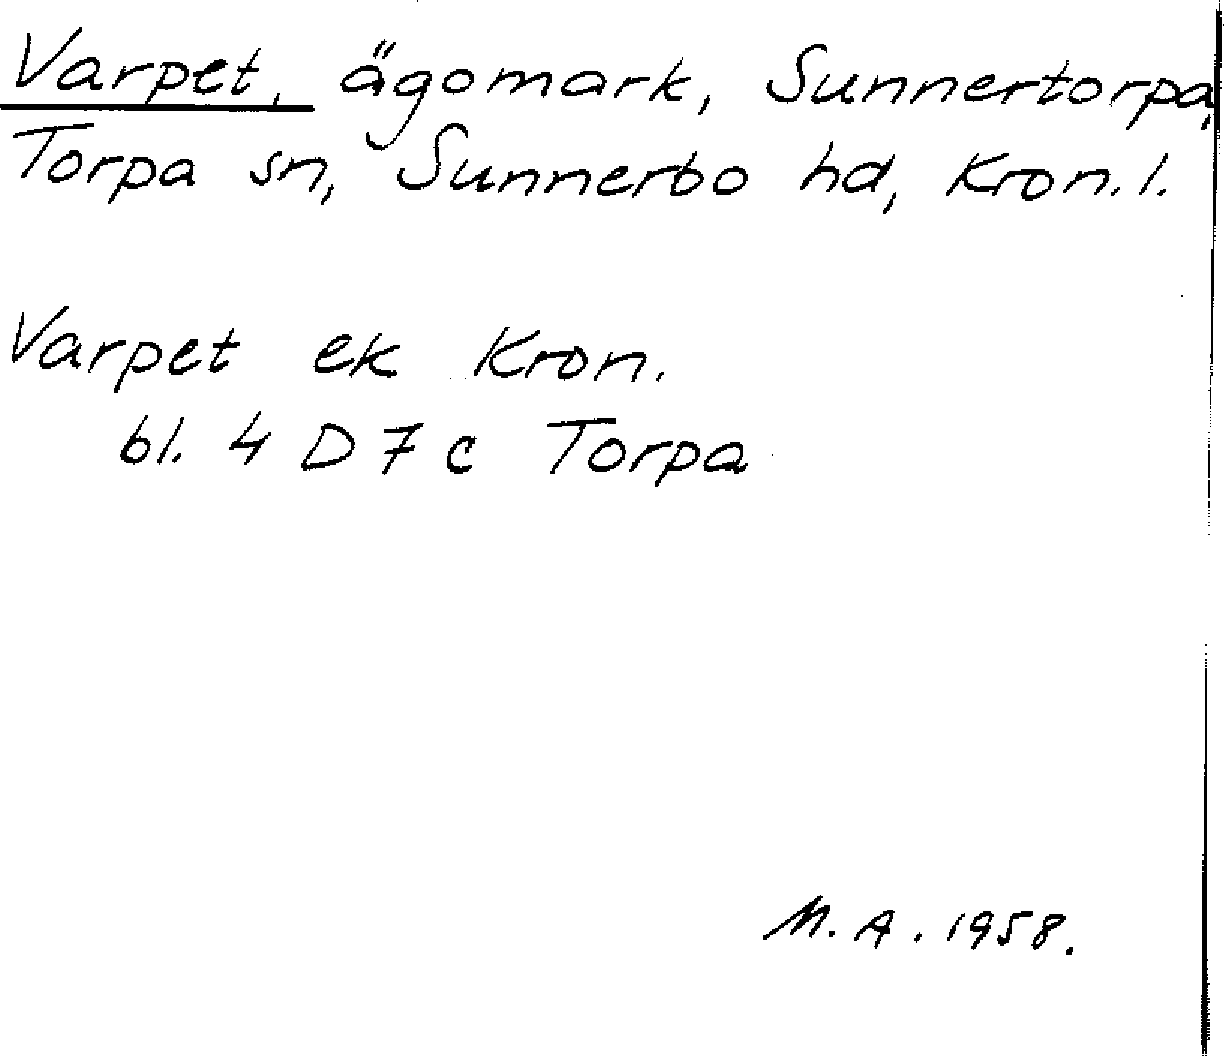 Varpet, ägomark, Sunnertorpa,
Torpa sn, Sunnerbo hd, Kron. l.
Varpet ek Kron.
bl. 4 D 7 c Torpa
M. A. 1958.